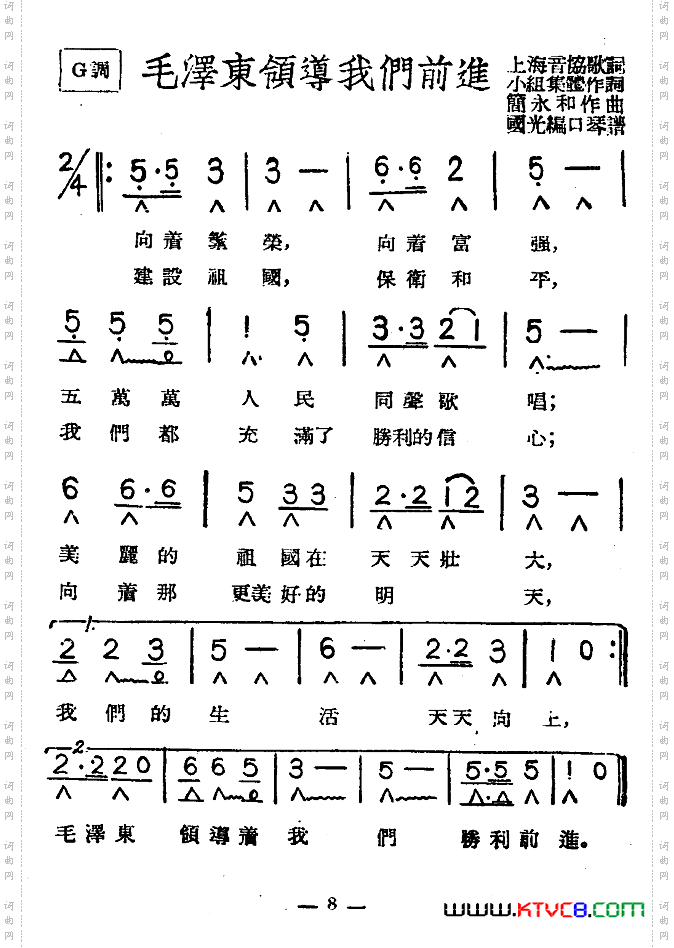 G調
毛澤東領導我們前進
上海音協歌詞
小組集體作詞
簡永和作曲
國光編口琴譜
2/4 5·5 3 | 3 — | 6·6 2 | 5 —
向着繁榮, 向着富强,
建設祖國, 保衛和平,
5 5 5 | 1 5 | 3·3 2 1 | 5 —
五萬萬人民同聲歌唱;
我們都充滿了勝利的信心;
6 6·6 | 5 3 3 | 2·2 1 2 | 3 —
美麗的祖國在天天壯大,
向着那更美好的明天,
1.
2 2 3 | 5 — | 6 — | 2·2 3 | 1 0 :|
我們的生活天天向上,
2.
2·2 2 0 | 6 6 5 | 3 — | 5 — | 5·5 5 | 1 0
毛澤東領導着我們勝利前進。
— 8 —
www.KTVC8.com
词曲网